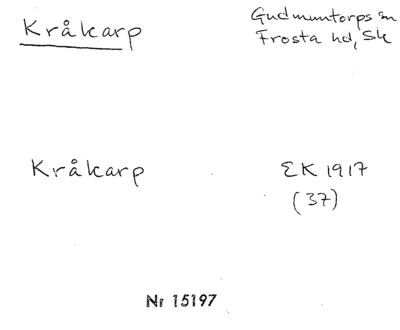 Kråkarp
Gudmuntorps sn
Frosta hd, Sk
Kråkarp
EK 1917
(37)
Nr 15197